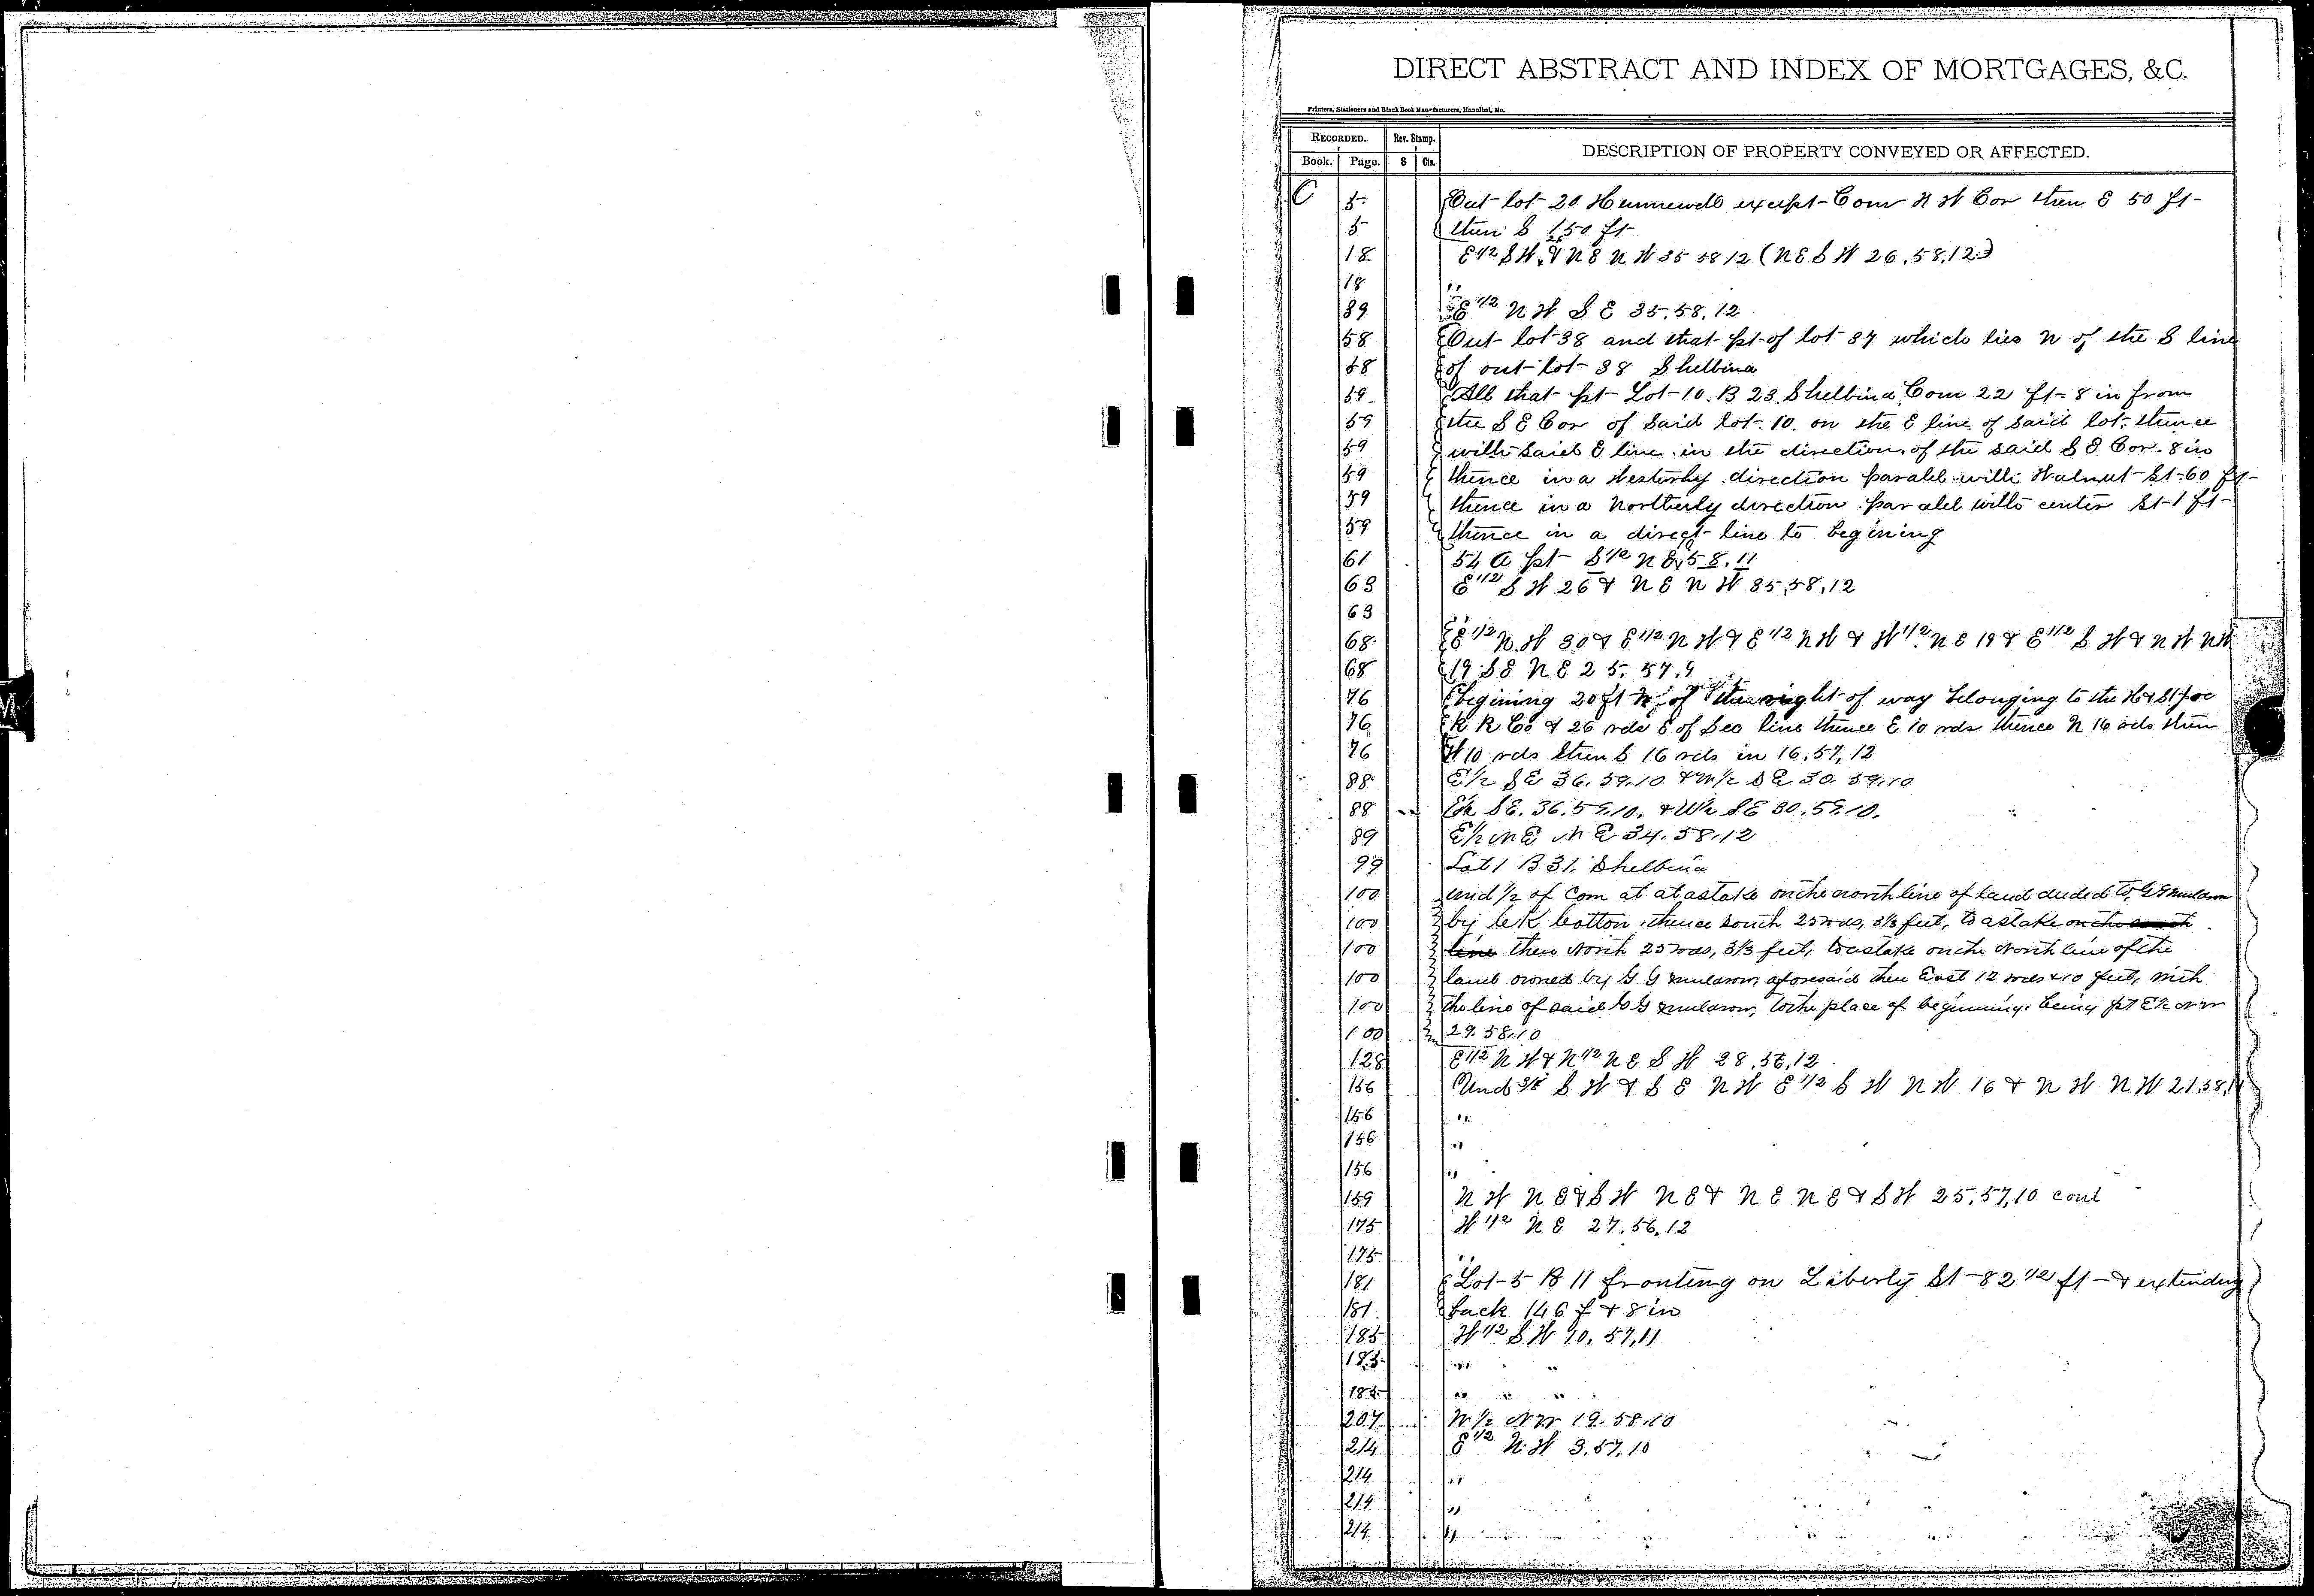 DIRECT ABSTRACT AND INDEX OF MORTGAGES, &C.
Printers, Stationers and Blank Book Manufacturers, Hannibal, Mo.
RECORDED. Rev. Stamp.
Book. Page. $ Cts. DESCRIPTION OF PROPERTY CONVEYED OR AFFECTED.
C 5 Out lot 20 Hunnewell except Com N W Cor then E 50 ft
5 then S 150 ft
18 E 1/2 S W 26 & N E N W 35 58 12 (N E S W 26, 58, 12)
18 "
39 E 1/2 N W S E 35, 58, 12
58 Out lot 38 and that pt of lot 37 which lies N of the S line
58 of out lot 38 Shelbina
59 All that pt Lot 10 B 23 Shelbina Com 22 ft 8 in from
59 the S E Cor of Said lot 10 on the E line of said lot thence
59 with said E line in the direction of the said S E Cor. 8 in
59 thence in a Westerly direction paralel with Walnut St 60 ft
59 thence in a Northerly direction paralel with center St 1 ft
59 thence in a direct line to begining
61 54 a pt S 1/2 N E 5 58, 11
63 E 1/2 S W 26 & N E N W 35, 58, 12
63 "
68 E 1/2 N W 30 & E 1/2 N W & E 1/2 N W & W 1/2 N E 19 & E 1/2 S W & N W N W
68 19 S E N E 25, 57, 9
76 begining 20 ft N of the right of way belonging to the H & St Joe
76 R R Co & 26 rds E of Sec line thence E 10 rds thence N 16 rds then
76 W 10 rds then S 16 rds in 16, 57, 12
88 E 1/2 S E 36. 59. 10 & W 1/2 S E 30 59. 10
88 E 1/2 S E. 36. 59. 10. & W 1/2 S E 30. 59. 10.
89 E 1/2 N E N E 34. 58. 12
99 Lot 1 B 31. Shelbina
100 und 1/2 of Com at at a stake on the north line of land deeded to G G
100 by Cotton thence South 25 rds, 3 1/3 feet, to a stake on the south
100 line then North 25 rds, 3 1/3 feet, to a stake on the North line of the
100 land owned by G G aforesaid then East 12 rods & 10 feet, with
100 the line of said G G to the place of beginning. being pt E 1/2 N W
100 29. 58. 10
128 E 1/2 N W & N 1/2 N E S W 28, 56, 12
156 Und S W & S E N W E 1/2 S W N W 16 & N W N W 21, 58, 11
156 "
156 "
156 "
159 N W N E & S W N E & N E N E & S W 25, 57, 10 coul
175 W 1/2 N E 27, 56, 12
175 "
181 Lot 5 B 11 fronting on Liberty St 82 1/2 ft & extending
181 back 146 f & 8 in
185 W 1/2 S W 10, 57, 11
185 "
185 " " "
207 W 1/2 N W 19. 58. 10
214 E 1/2 N W 3, 57, 10
214 "
214 "
214 "